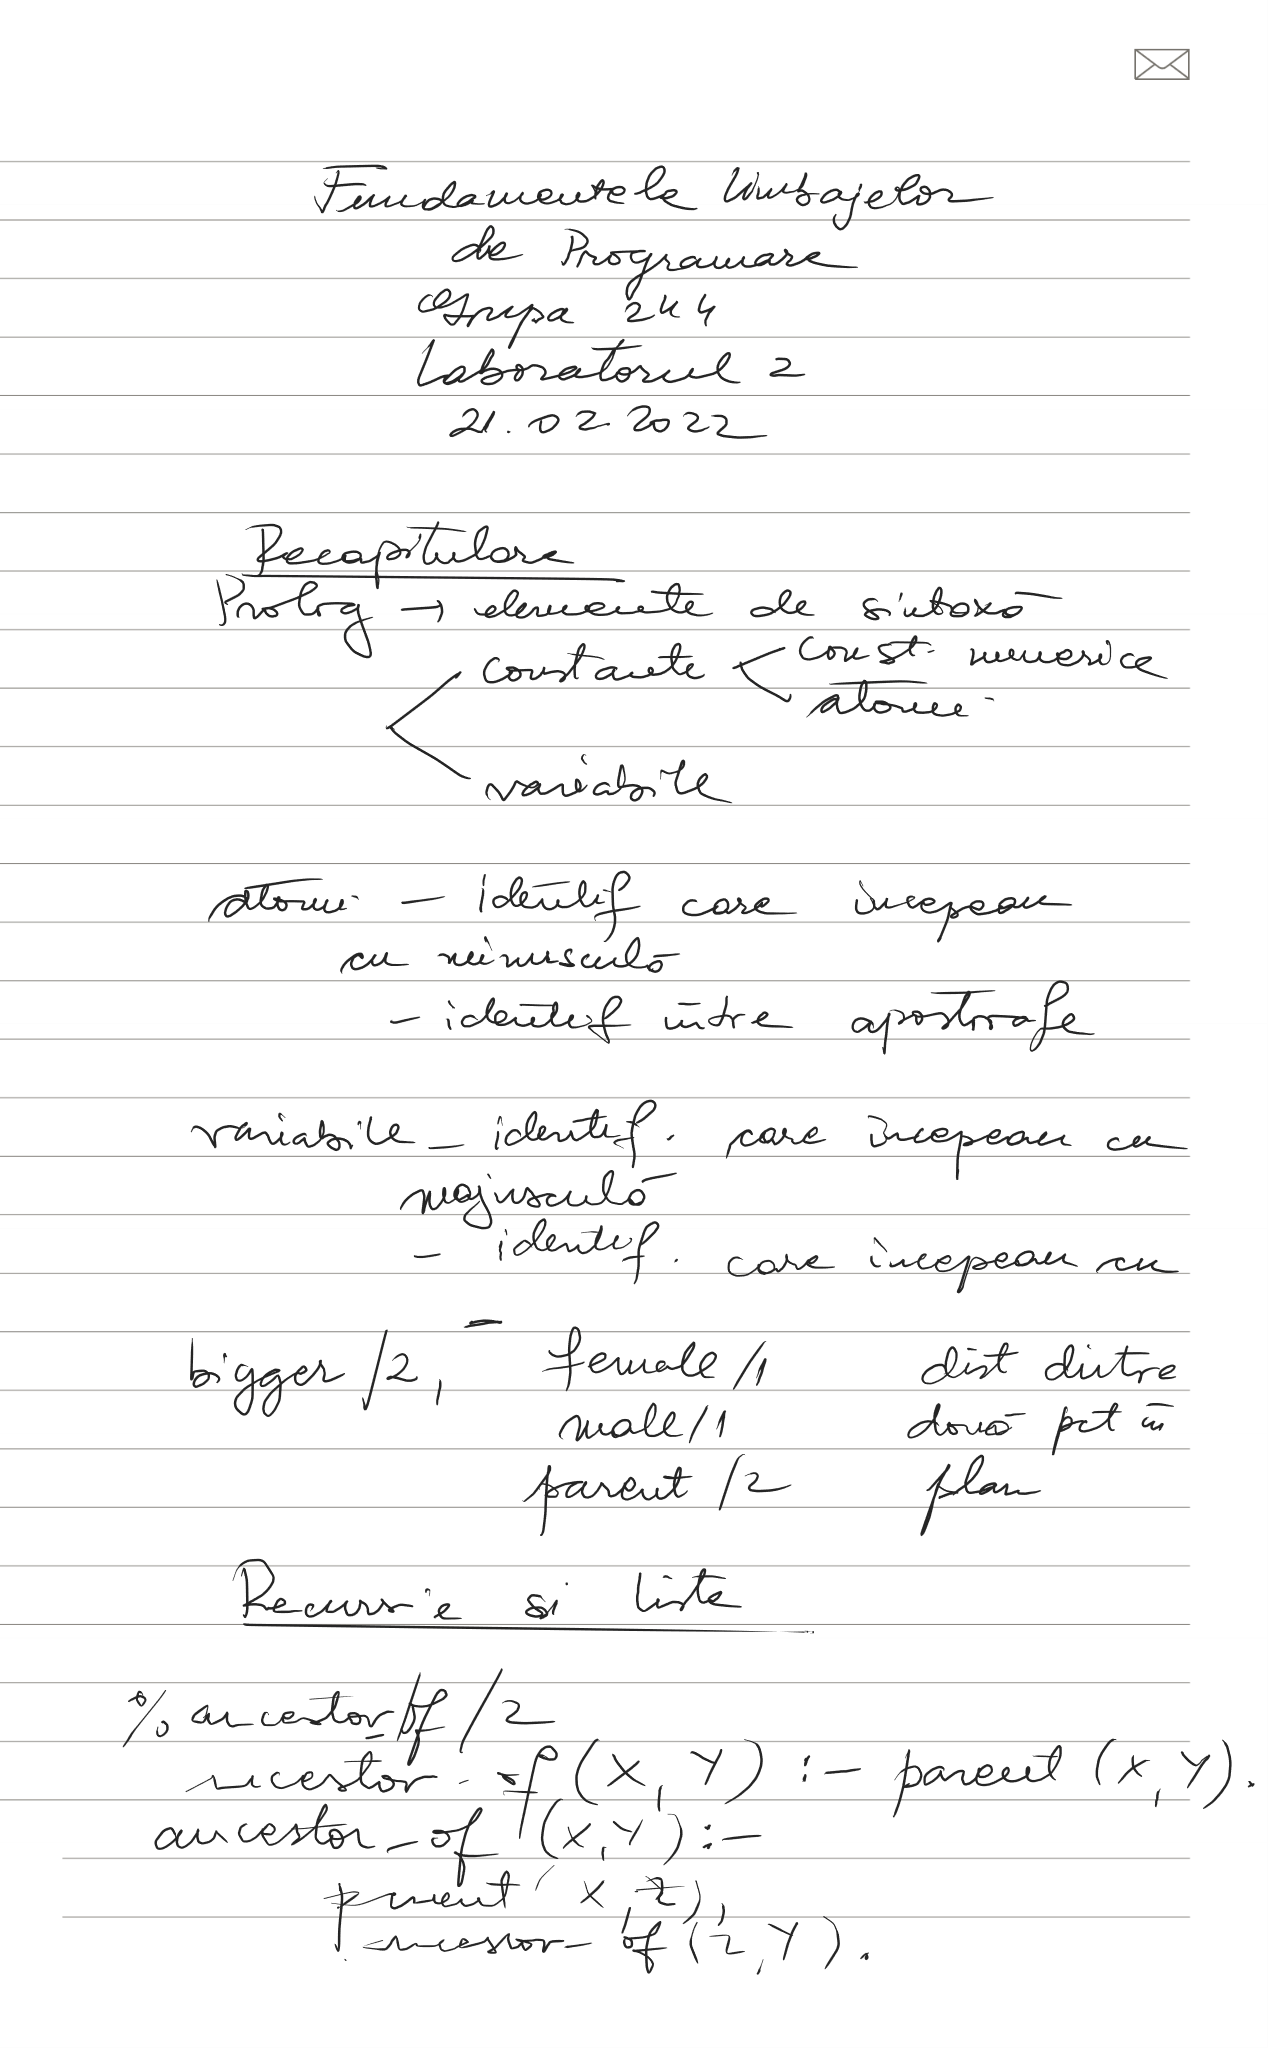 Fundamentele limbajelor
de Programare
Grupa 244
Laboratorul 2
21.02.2022
Recapitulare
Prolog → elemente de sintaxă
constante < const. numerice
atomi
variabile
atomi – identif care încep cu
cu minusculă
– identif între apostrofe
variabile – identif. care încep cu
majusculă
– identif. care încep cu
_
bigger/2, female/1 dist dintre
male/1 două pct în
parent/2 plan
Recursie si liste
% ancestor_of/2
ancestor_of(X, Y) :- parent(X, Y).
ancestor_of(X,Y) :-
parent(X,Z),
ancestor_of(Z,Y).